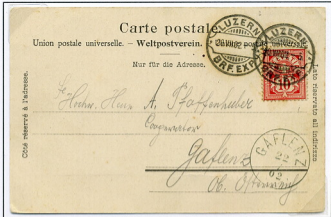 Carte postale.
Union postale universelle. – Weltpostverein. – postale universale
Nur für die Adresse.
Côté réservé à l'adresse.
Lato riservato all indirizzo
LUZERN
BRF. EXP.
LUZERN
10
Hochw. Herrn A. Pfaffenhuber
Cooperator
Gaflenz
Ob. Österreich
GAFLENZ
22
02